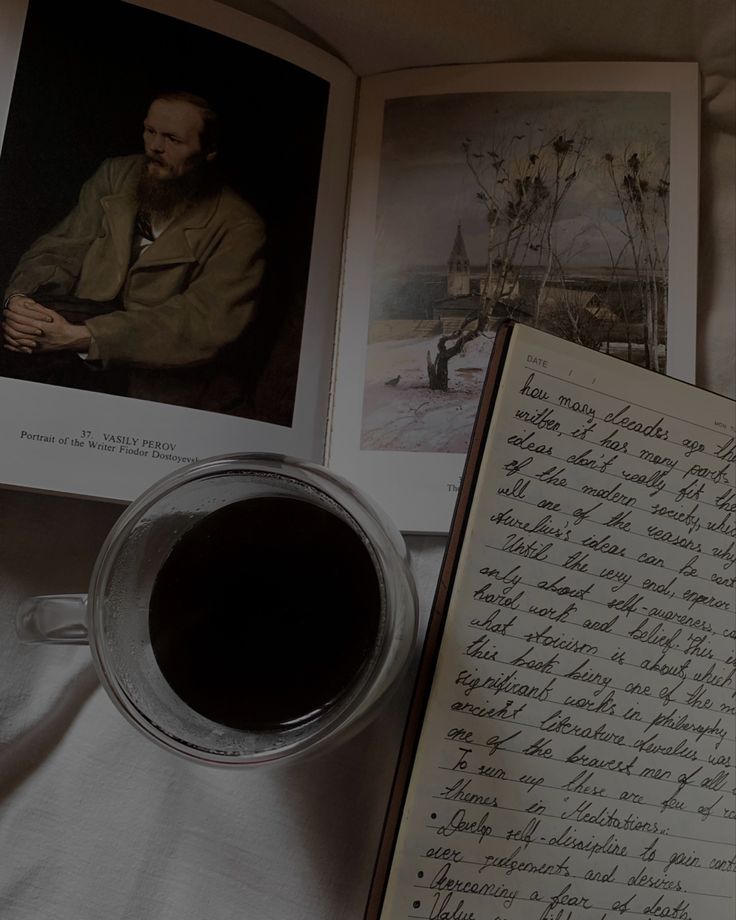 37. VASILY PEROV
Portrait of the Writer Fiodor Dostoyevsk
The
DATE / /
MON T
how many decades ago the
written, it has many parts
ideas don't really fit the
of the modern society, whic
will one of the reasons why
Aurelius's ideas can be cont
Until the very end, emperor
only about self-awareness, co
hard work and belief. This is
what stoicism is about, which
this book being one of the m
significant works in philosophy
ancient literature Aurelius was
one of the bravest men of all
To sum up these are few of
themes in "Meditations„:
• Develop self-discipline to gain cont
over judgements and desires.
• Overcoming a fear of death
• Value